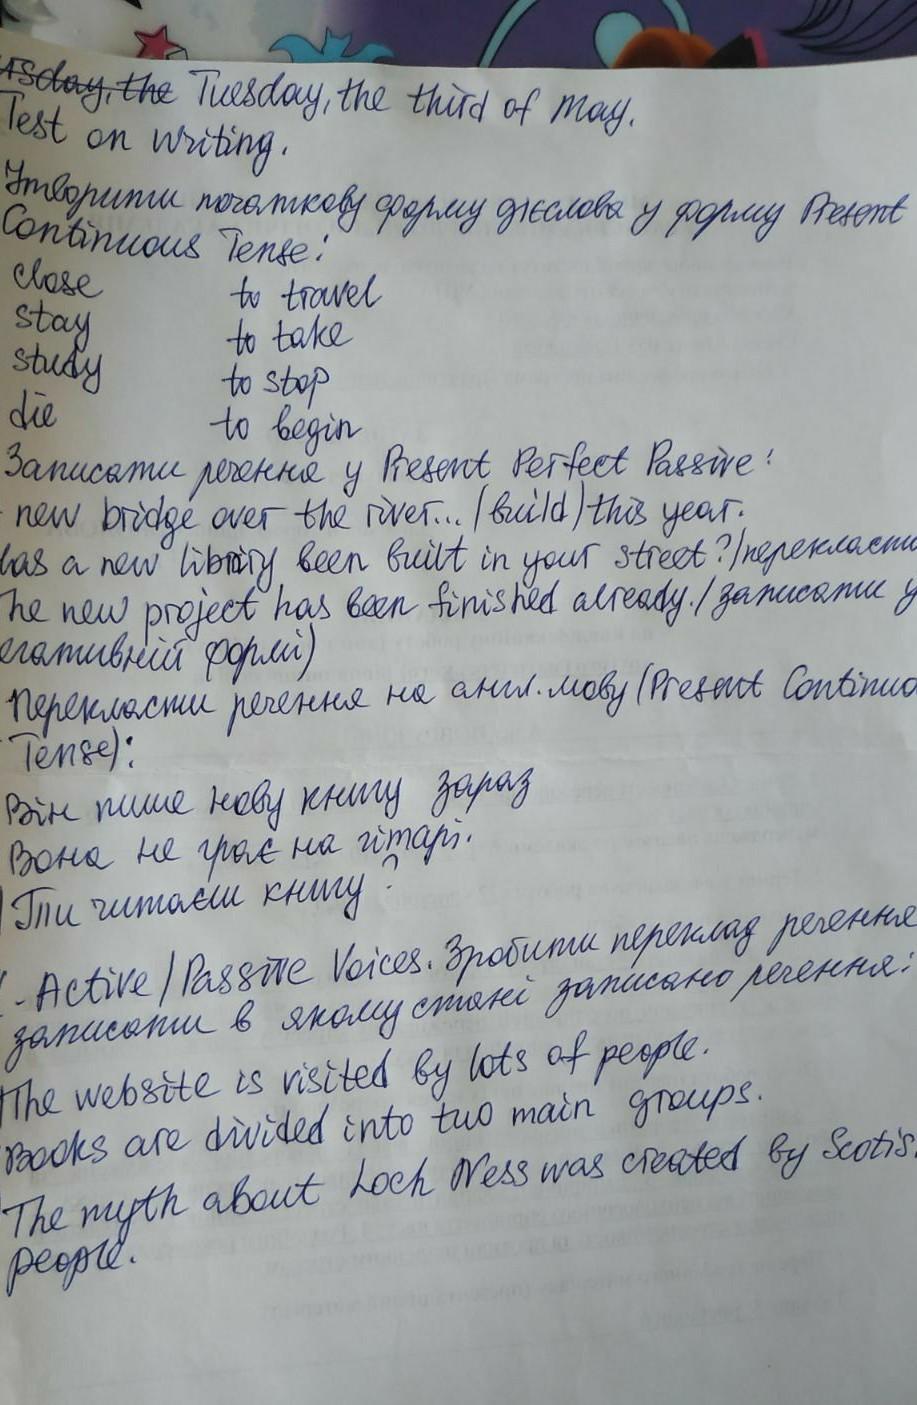 the Tuesday, the third of May.
Test on writing.
Утворити початкову форму дієслова у форму Present
Continuous Tense:
close to travel
stay to take
study to stop
die to begin
Записати речення у Present Perfect Passive:
new bridge over the river... (build) this year.
has a new library been built in your street? /перекласти
The new project has been finished already. /записати у
егативній формі)
Перекласти речення на англ. мову (Present Continuo
Tense):
Він пише нову книгу зараз
Вона не грає на гітарі.
Ти читаєш книгу?
- Active / Passive Voices. Зробити переклад речення
записати в якому стані записано речення:
The website is visited by lots of people.
Books are divided into two main groups.
The myth about Loch Ness was created by Scotis
people.